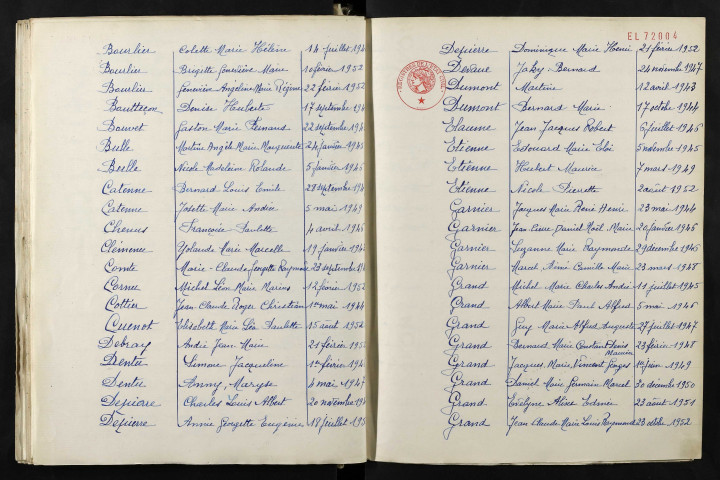 Bourlier Colette Marie Hélène 14 juillet 194
Bourlier Brigitte Geneviève Marie 10 février 1952
Bourlier Geneviève Angeline Marie Régine 22 février 1952
Denise Huberte 17 septembre 194
Bouvet Gaston Marie Fernand 22 septembre 194
Martine Angèle Marie Marguerite 24 janvier 194
Nicole Madeleine Rolande 5 janvier 194
Catenne Bernard Louis Emile 28 septembre 194
Catenne Josette Marie Andrée 5 mai 1949
Françoise Paulette 4 avril 194
Clémence Yolande Marie Marcelle 19 janvier 194
Comte Marie-Claude Georgette Raymonde 23 septembre 194
Cornu Michel Léon Marie Marius 12 février 195
Cottier Jean Claude Roger Christian 1er mai 194
Cuenot Elisabeth Marie Léa Paulette 15 août 195
Debray André Jean Marie 21 février 195
Simone Jacqueline 1er février 194
Anny Maryse 4 mai 194
Depierre Charles Louis Albert 20 novembre 194
Depierre Annie Georgette Eugénie 18 juillet 195
EL 72004
Depierre Dominique Marie Henri 21 février 1952
Jacky Bernard 24 novembre 1947
Dumont Martine 12 avril 1943
Dumont Bernard Marie 17 octobre 1944
Jean Jacques Robert 6 juillet 1946
Etienne Edouard Marie Eloi 5 novembre 1945
Etienne Huebert Maurice 7 mars 1949
Etienne Nicole Pierrette 2 août 1952
Garnier Jacques Marie René Henri 23 mai 1944
Garnier Jean Pierre Daniel Noël Marie 20 janvier 1946
Garnier Suzanne Marie Raymonde 29 décembre 1946
Garnier Marcel Aimé Camille Marie 23 mars 1948
Grand Michel Marie Charles André 11 juillet 1945
Grand Albert Marie Paul Alfred 5 mai 1946
Grand Guy Marie Alfred Auguste 27 juillet 1947
Grand Bernard Marie Constant Denis Maurice 23 février 1948
Grand Jacques Marie Vincent Georges 1er juin 1949
Grand Daniel Marie Germain Marcel 30 décembre 1950
Grand Evelyne Alixe Edmée 23 août 1951
Grand Jean Claude Marie Louis Raymond 23 octobre 1952